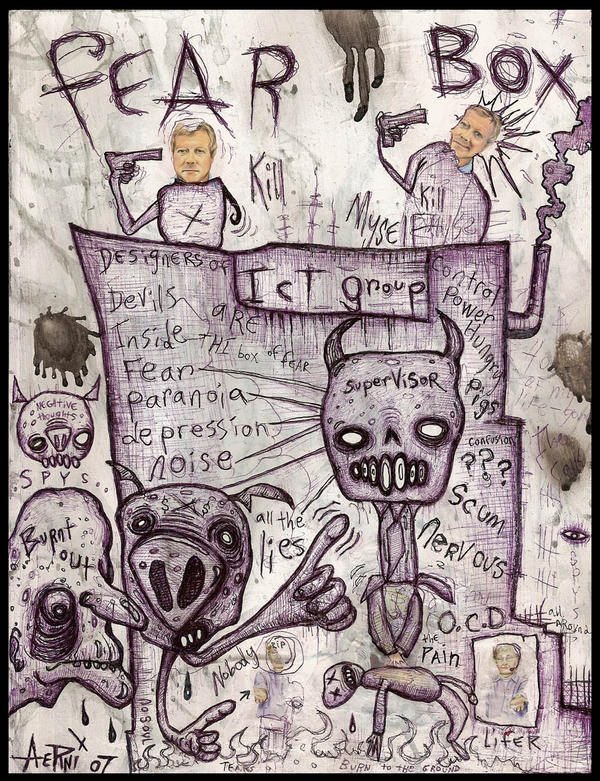 FEAR BOX
Kill
Myself
Kill
False
Designers of
ICT group
Devils
aRE
Inside
THE box of FEAR
Fear
paranoia
depression
noise
Control
Power
Hungry
pigs
SuperVisoR
confusion
???
Scum
nervous
NEGATIVE
thoughts
SPYS
Burnt
out
$ $
all the
lies
O.C.D
the
Pain
Nobody
RIP
LifER
SPYS
all
AROUND
Aeppni x 07
TEARS
Burn to the GROUND